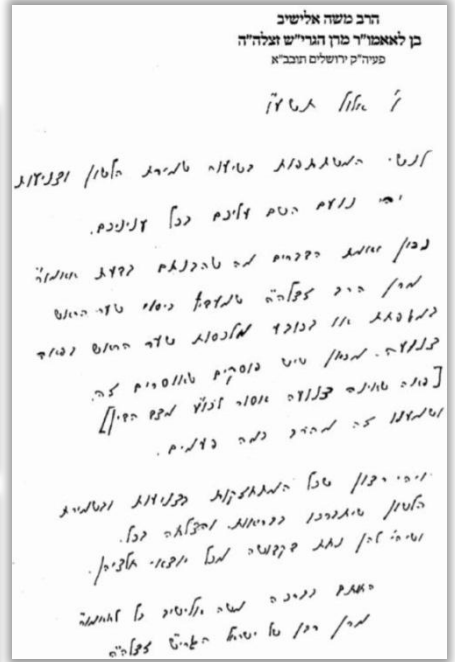 הרב משה אלישיב
בן לאאמו"ר מרן הגרי"ש זצלה"ה
פעיה"ק ירושלים תובב"א
ו' אלול תשע"ו
לנשי המשתתפות בשיעור שמירת הלשון וצניעות
יהי נועם השם עליכם בכל עניניכם.
נכון ואמת הדברים מה שהבנתם בדעת אאמו"ר
מרן הרב זצלה"ה שמעדיף כיסוי שער הראש
במטפחת או בכובע מלכסות שער הראש בפאה
צנועה. מכאן שיש פוסקים שאוסרים זה.
[פאה שאינה צנועה אסור לכו"ע מצד הדין]
ושמענו זה מהרב כמה פעמים.
ויהי רצון שכל המתחזקות בצניעות ובשמירת
הלשון שיתברכו בבריאות והצלחה בכל.
ושיהי' להן נחת דקדושה מכל יוצאי חלציהן.
החתם בברכה משה אלישיב בל לאאמו"ר
מרן רבן של ישראל הגרי"ש זצלה"ה